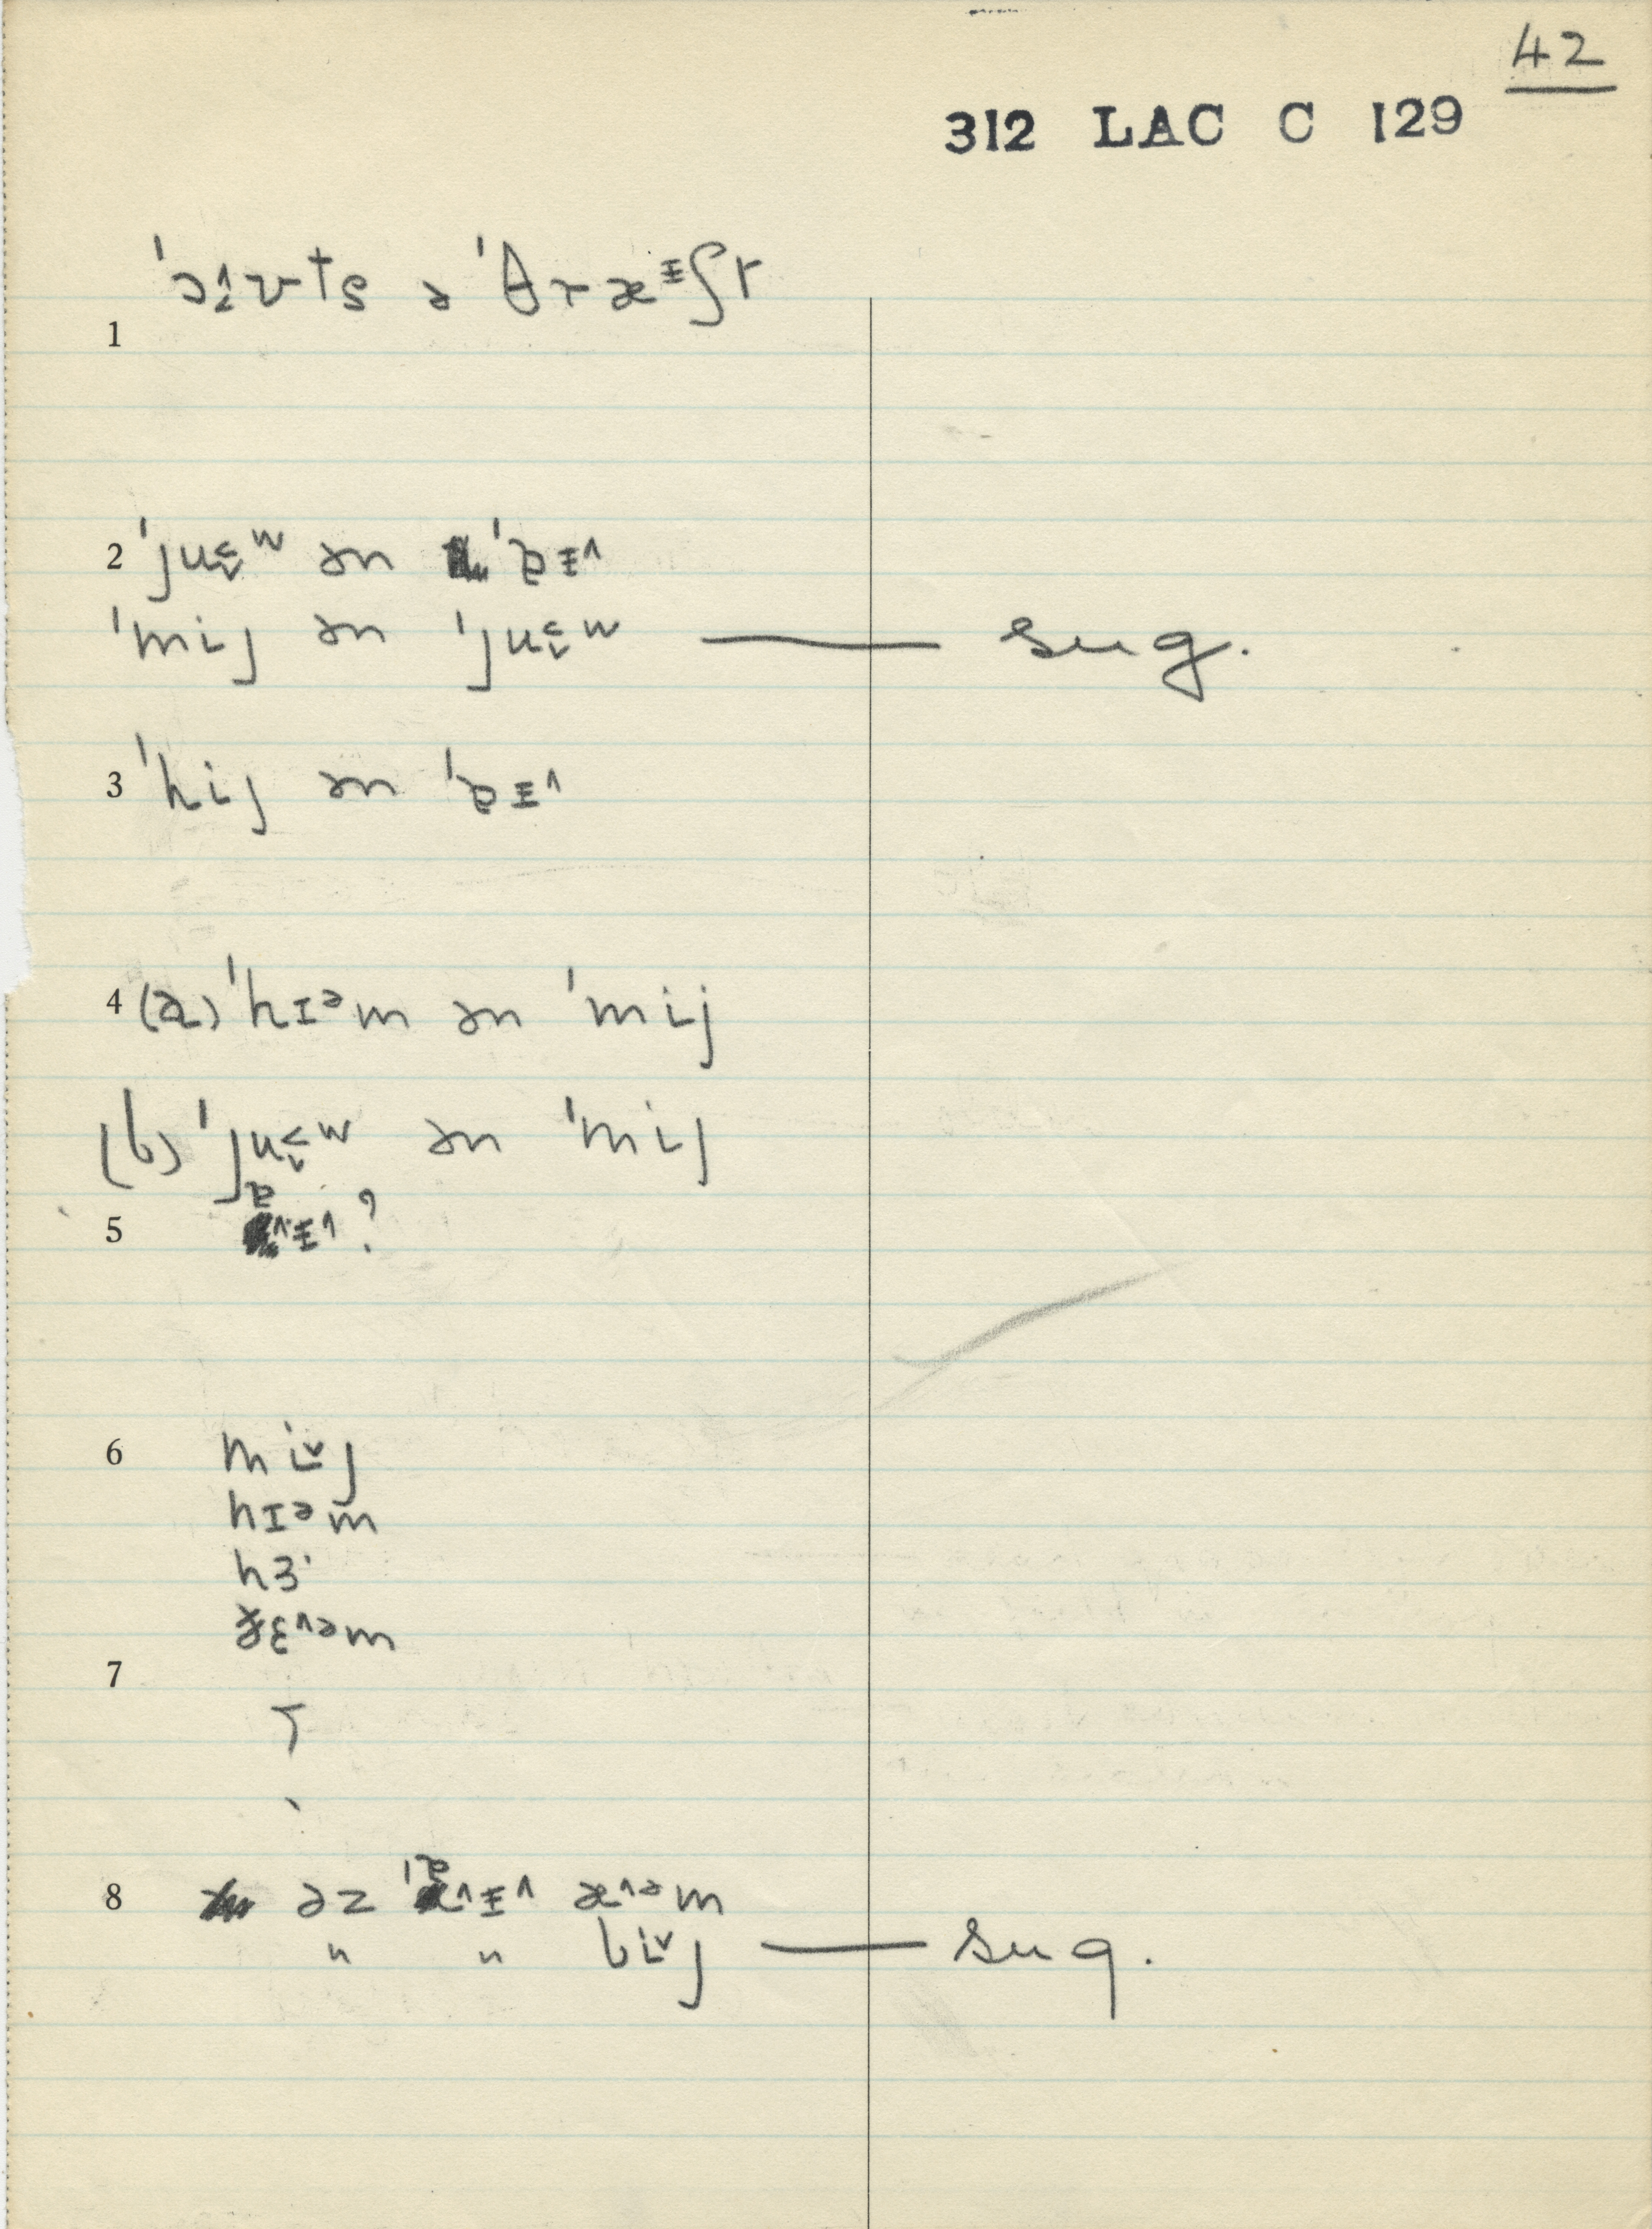 42
312 LAC C 129
1 ˈɔ˔ʌvts ə ˈθræᵻʃr
2 ˈjuw ən ˈɐᵻ^
ˈmij ən ˈjuw — sug.
3 ˈhij ən ˈɐᵻ^
4 (a) ˈhɪᵊm ən ˈmij
(b) ˈjuw ən ˈmij
5 ɐᵻ^?
6 mi˅j
hɪᵊm
hɜ˙
ðɛ^ᵊm
7
8 əz ˈɐᵻ^ æ^ᵊm
" " bi˅j — sug.